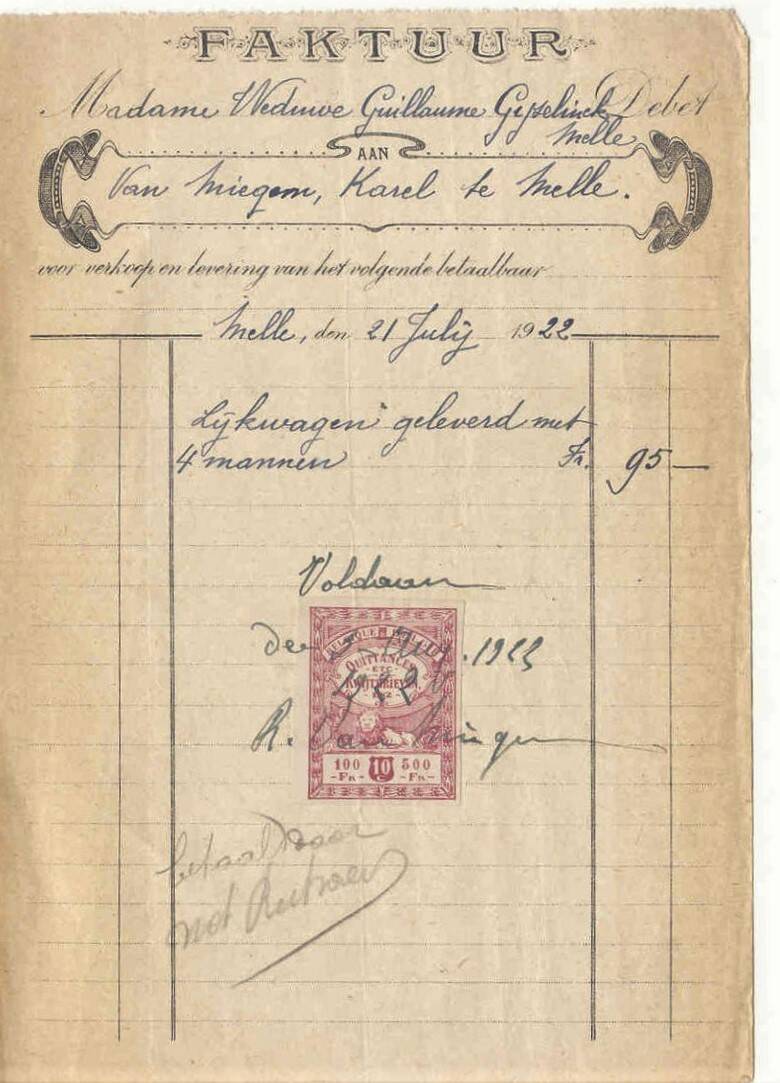 FAKTUUR
Madame Weduwe Guillaume Gijselinck Debet
Melle
AAN
Van Miegem, Karel te Melle.
voor verkoop en levering van het volgende betaalbaar
Melle, den 21 July 1922
Lijkwagen geleverd met
4 mannen Fr. 95 —
Voldaan
QUITTANCES
ETC
KWIJTBRIEVEN
ENZ
R. Van
100 10 500
-FR- -FR-
betaalbaar
met